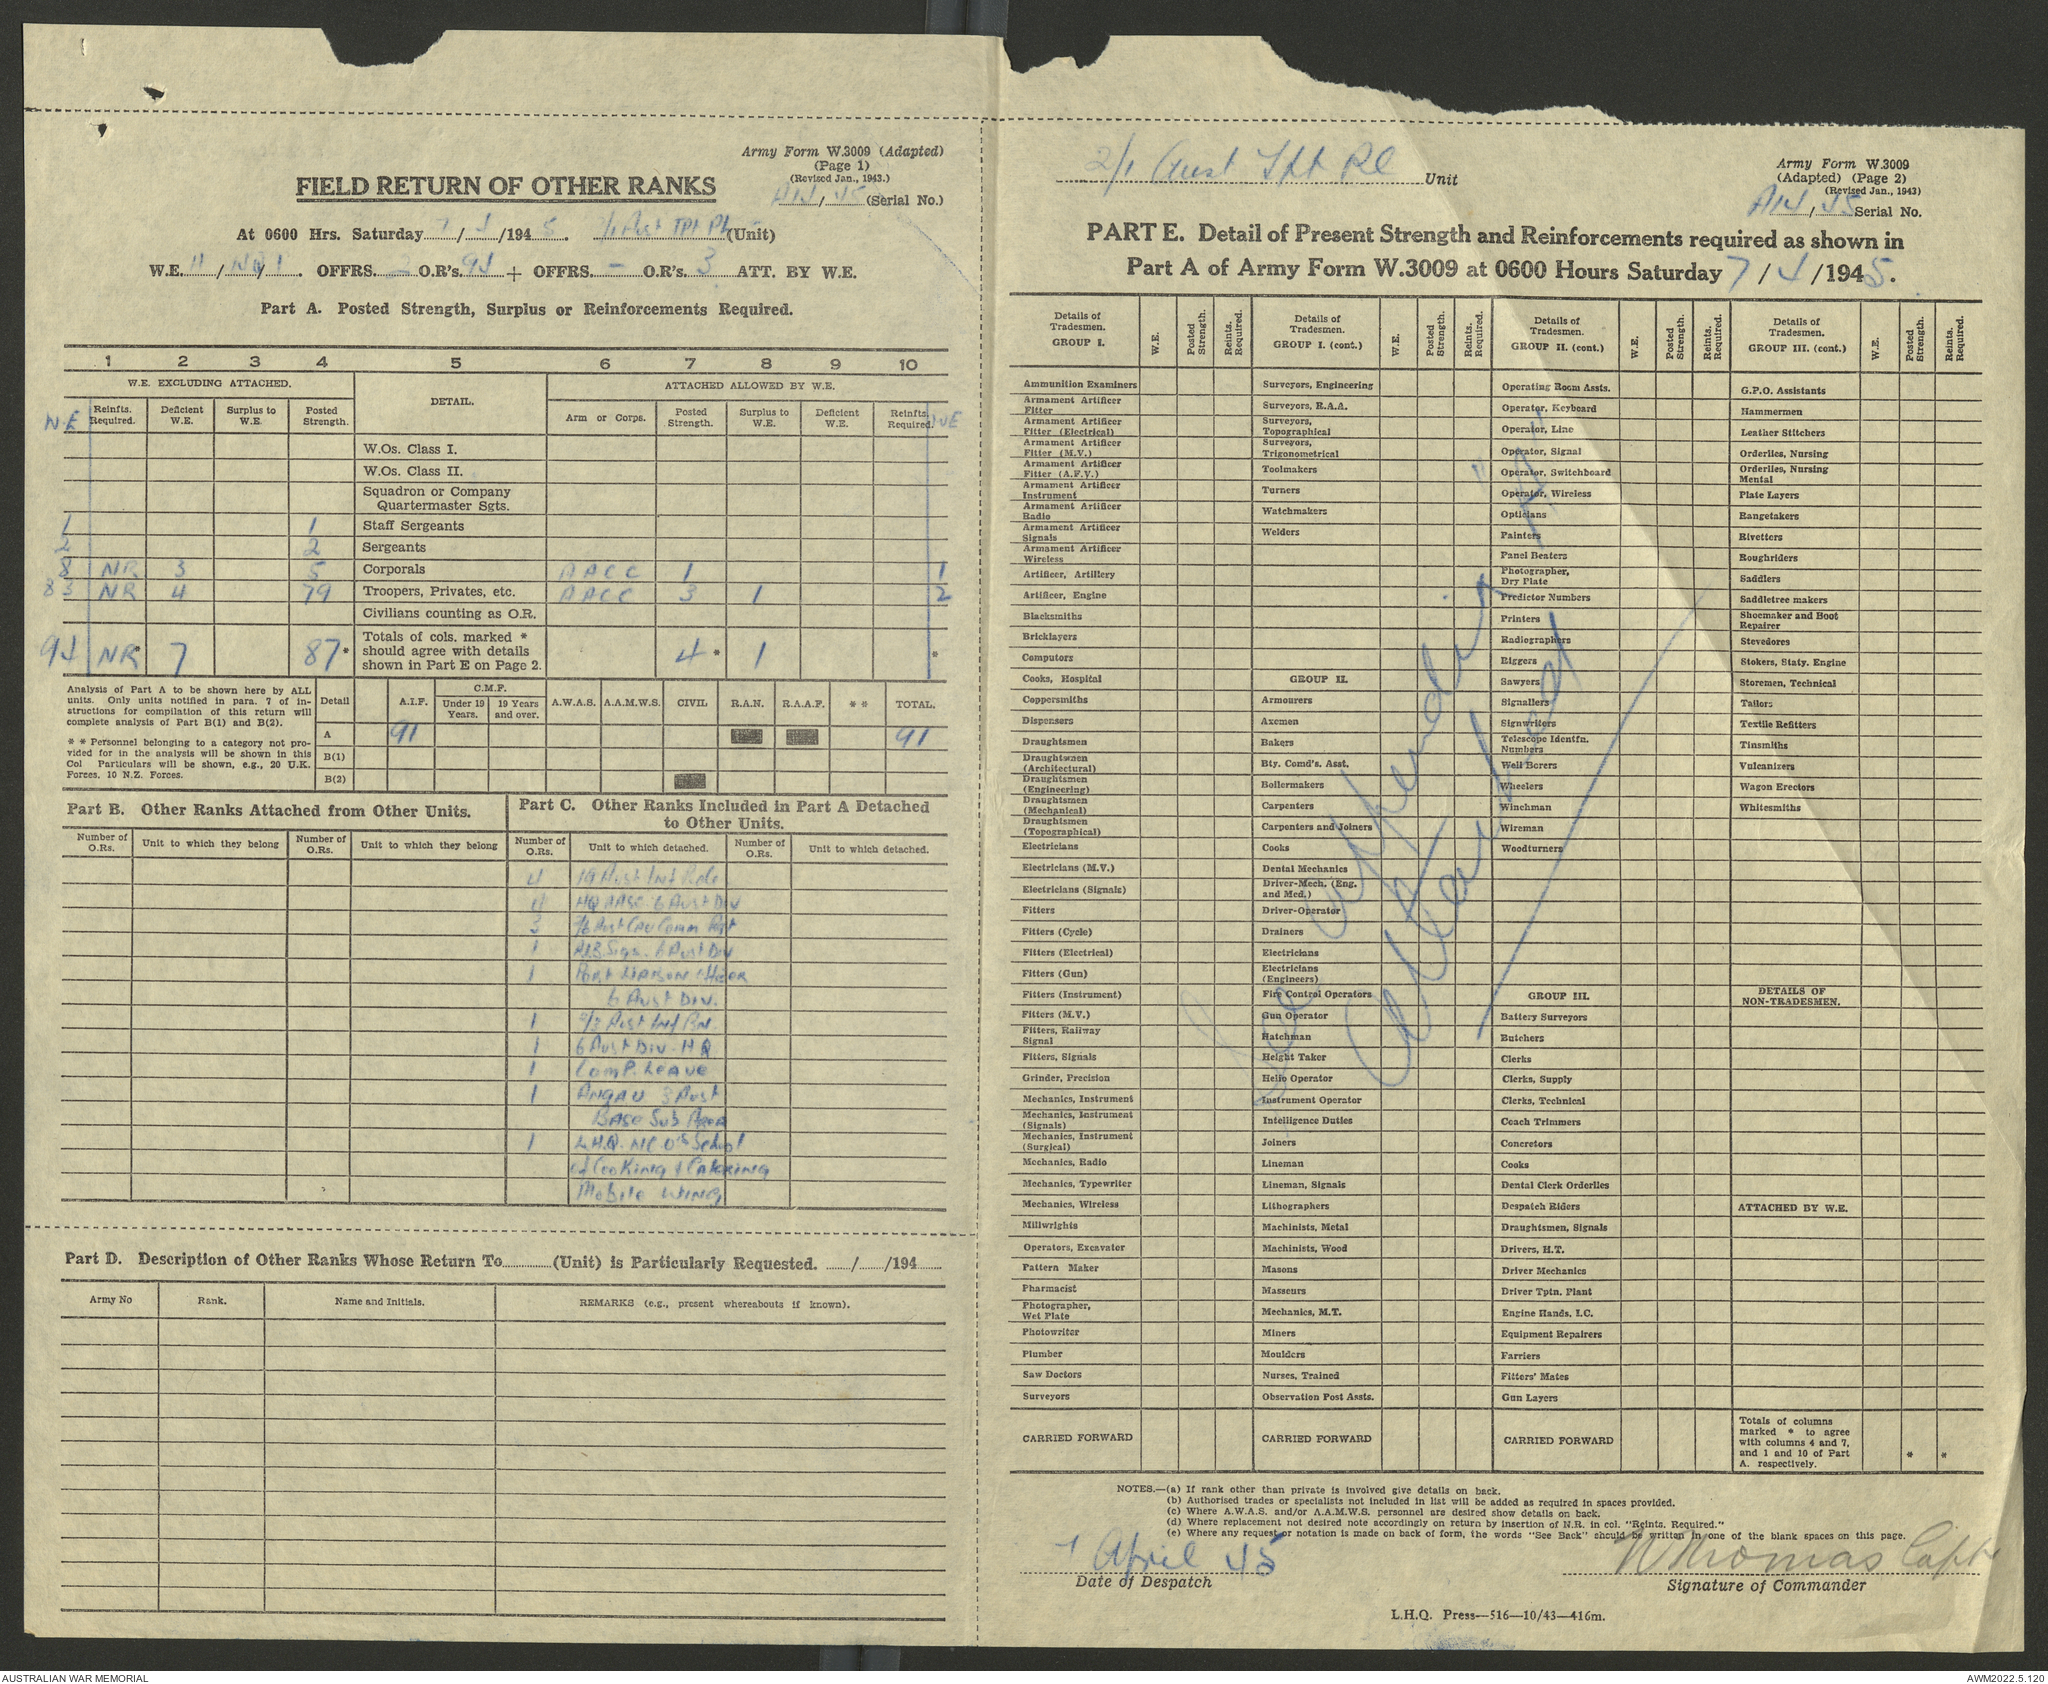 Army Form W.3009 (Adapted)
(Page 1)
(Revised Jan., 1943.)
FIELD RETURN OF OTHER RANKS
(Serial No.)
At 0600 Hrs. Saturday 7/4/1945. 2/1 Aust Tpt Pl (Unit)
W.E. 11/ / 1. OFFRS. 2 O.R's. 94 + OFFRS. – O.R's. 3 ATT. BY W.E.
Part A. Posted Strength, Surplus or Reinforcements Required.
1 2 3 4 5 6 7 8 9 10
W.E. EXCLUDING ATTACHED. DETAIL. ATTACHED ALLOWED BY W.E.
W.E Reinfts. Required. Deficient W.E. Surplus to W.E. Posted Strength. Arm or Corps. Posted Strength. Surplus to W.E. Deficient W.E. Reinfts. Required. WE
W.Os. Class I.
W.Os. Class II.
Squadron or Company
Quartermaster Sgts.
1 1 Staff Sergeants
2 2 Sergeants
8 NR 3 5 Corporals AACC 1 1
83 NR 4 79 Troopers, Privates, etc. AACC 3 1 2
Civilians counting as O.R.
94 NR* 7 87* Totals of cols. marked * should agree with details shown in Part E on Page 2. 4* 1 *
Analysis of Part A to be shown here by ALL
units. Only units notified in para. 7 of in-
structions for compilation of this return will
complete analysis of Part B(1) and B(2).
* * Personnel belonging to a category not pro-
vided for in the analysis will be shown in this
Col Particulars will be shown, e.g., 20 U.K.
Forces, 10 N.Z. Forces.
Detail A.I.F. C.M.F. Under 19 Years. 19 Years and over. A.W.A.S. A.A.M.W.S. CIVIL R.A.N. R.A.A.F. * * TOTAL.
A 91 91
B(1)
B(2)
Part B. Other Ranks Attached from Other Units.
Number of O.Rs. Unit to which they belong Number of O.Rs. Unit to which they belong
Part C. Other Ranks Included in Part A Detached
to Other Units.
Number of O.Rs. Unit to which detached. Number of O.Rs. Unit to which detached.
4 19 Aust Inf Bde
4 HQ AASC 6 Aust Div
3 2/6 Aust Cav Comm Regt
1 Sigs. 6 Aust Div
1 Port Liaison Officer
6 Aust Div.
1 2/3 Aust Inf Bn.
1 6 Aust Div. HQ
1 Comp. Leave
1 Angau 3 Aust
Base Sub Area
1 L.H.Q. NCO's School
of Cooking & Catering
Mobile Wing
Part D. Description of Other Ranks Whose Return To (Unit) is Particularly Requested. / /194
Army No Rank. Name and Initials. REMARKS (e.g., present whereabouts if known).
2/1 Aust Tpt Pl Unit
Army Form W.3009
(Adapted) (Page 2)
(Revised Jan., 1943)
Serial No.
PART E. Detail of Present Strength and Reinforcements required as shown in
Part A of Army Form W.3009 at 0600 Hours Saturday 7/4/1945.
Details of Tradesmen. GROUP I. W.E. Posted Strength. Reints. Required.
Ammunition Examiners
Armament Artificer Fitter
Armament Artificer Fitter (Electrical)
Armament Artificer Fitter (M.V.)
Armament Artificer Fitter (A.F.V.)
Armament Artificer Instrument
Armament Artificer Radio
Armament Artificer Signals
Armament Artificer Wireless
Artificer, Artillery
Artificer, Engine
Blacksmiths
Bricklayers
Computors
Cooks, Hospital
Coppersmiths
Dispensers
Draughtsmen
Draughtsmen (Architectural)
Draughtsmen (Engineering)
Draughtsmen (Mechanical)
Draughtsmen (Topographical)
Electricians
Electricians (M.V.)
Electricians (Signals)
Fitters
Fitters (Cycle)
Fitters (Electrical)
Fitters (Gun)
Fitters (Instrument)
Fitters (M.V.)
Fitters, Railway Signal
Fitters, Signals
Grinder, Precision
Mechanics, Instrument
Mechanics, Instrument (Signals)
Mechanics, Instrument (Surgical)
Mechanics, Radio
Mechanics, Typewriter
Mechanics, Wireless
Millwrights
Operators, Excavator
Pattern Maker
Pharmacist
Photographer, Wet Plate
Photowriter
Plumber
Saw Doctors
Surveyors
CARRIED FORWARD
Details of Tradesmen. GROUP I. (cont.) W.E. Posted Strength. Reints. Required.
Surveyors, Engineering
Surveyors, R.A.A.
Surveyors, Topographical
Surveyors, Trigonometrical
Toolmakers
Turners
Watchmakers
Welders
GROUP II.
Armourers
Axemen
Bakers
Bty. Comd's. Asst.
Boilermakers
Carpenters
Carpenters and Joiners
Cooks
Dental Mechanics
Driver-Mech. (Eng. and Med.)
Driver-Operator
Drainers
Electricians
Electricians (Engineers)
Fire Control Operators
Gun Operator
Hatchman
Height Taker
Helio Operator
Instrument Operator
Intelligence Duties
Joiners
Lineman
Lineman, Signals
Lithographers
Machinists, Metal
Machinists, Wood
Masons
Masseurs
Mechanics, M.T.
Miners
Moulders
Nurses, Trained
Observation Post Assts.
CARRIED FORWARD
Details of Tradesmen. GROUP II. (cont.) W.E. Posted Strength. Reints. Required.
Operating Room Assts.
Operator, Keyboard
Operator, Line
Operator, Signal
Operator, Switchboard
Operator, Wireless
Opticians
Painters
Panel Beaters
Photographer, Dry Plate
Predictor Numbers
Printers
Radiographers
Riggers
Sawyers
Signallers
Signwriters
Telescope Identfn. Numbers
Well Borers
Wheelers
Winchman
Wireman
Woodturners
GROUP III.
Battery Surveyors
Butchers
Clerks
Clerks, Supply
Clerks, Technical
Coach Trimmers
Concretors
Cooks
Dental Clerk Orderlies
Despatch Riders
Draughtsmen, Signals
Drivers, H.T.
Driver Mechanics
Driver Tptn. Plant
Engine Hands, I.C.
Equipment Repairers
Farriers
Fitters' Mates
Gun Layers
CARRIED FORWARD
Details of Tradesmen. GROUP III. (cont.) W.E. Posted Strength. Reints. Required.
G.P.O. Assistants
Hammermen
Leather Stitchers
Orderlies, Nursing
Orderlies, Nursing Mental
Plate Layers
Rangetakers
Rivetters
Roughriders
Saddlers
Saddletree makers
Shoemaker and Boot Repairer
Stevedores
Stokers, Staty. Engine
Storemen, Technical
Tailors
Textile Refitters
Tinsmiths
Vulcanizers
Wagon Erectors
Whitesmiths
DETAILS OF NON-TRADESMEN.
ATTACHED BY W.E.
Totals of columns marked * to agree with columns 4 and 7, and 1 and 10 of Part A. respectively. * *
See Appendix "A"
attached
NOTES.—(a) If rank other than private is involved give details on back.
(b) Authorised trades or specialists not included in list will be added as required in spaces provided.
(c) Where A.W.A.S. and/or A.A.M.W.S. personnel are desired show details on back.
(d) Where replacement not desired note accordingly on return by insertion of N.R. in col. "Reints. Required."
(e) Where any request or notation is made on back of form, the words "See Back" should be written in one of the blank spaces on this page.
7 April 45
Date of Despatch
W Thomas Capt
Signature of Commander
L.H.Q. Press—516—10/43—416m.
AUSTRALIAN WAR MEMORIAL
AWM2022.5.120